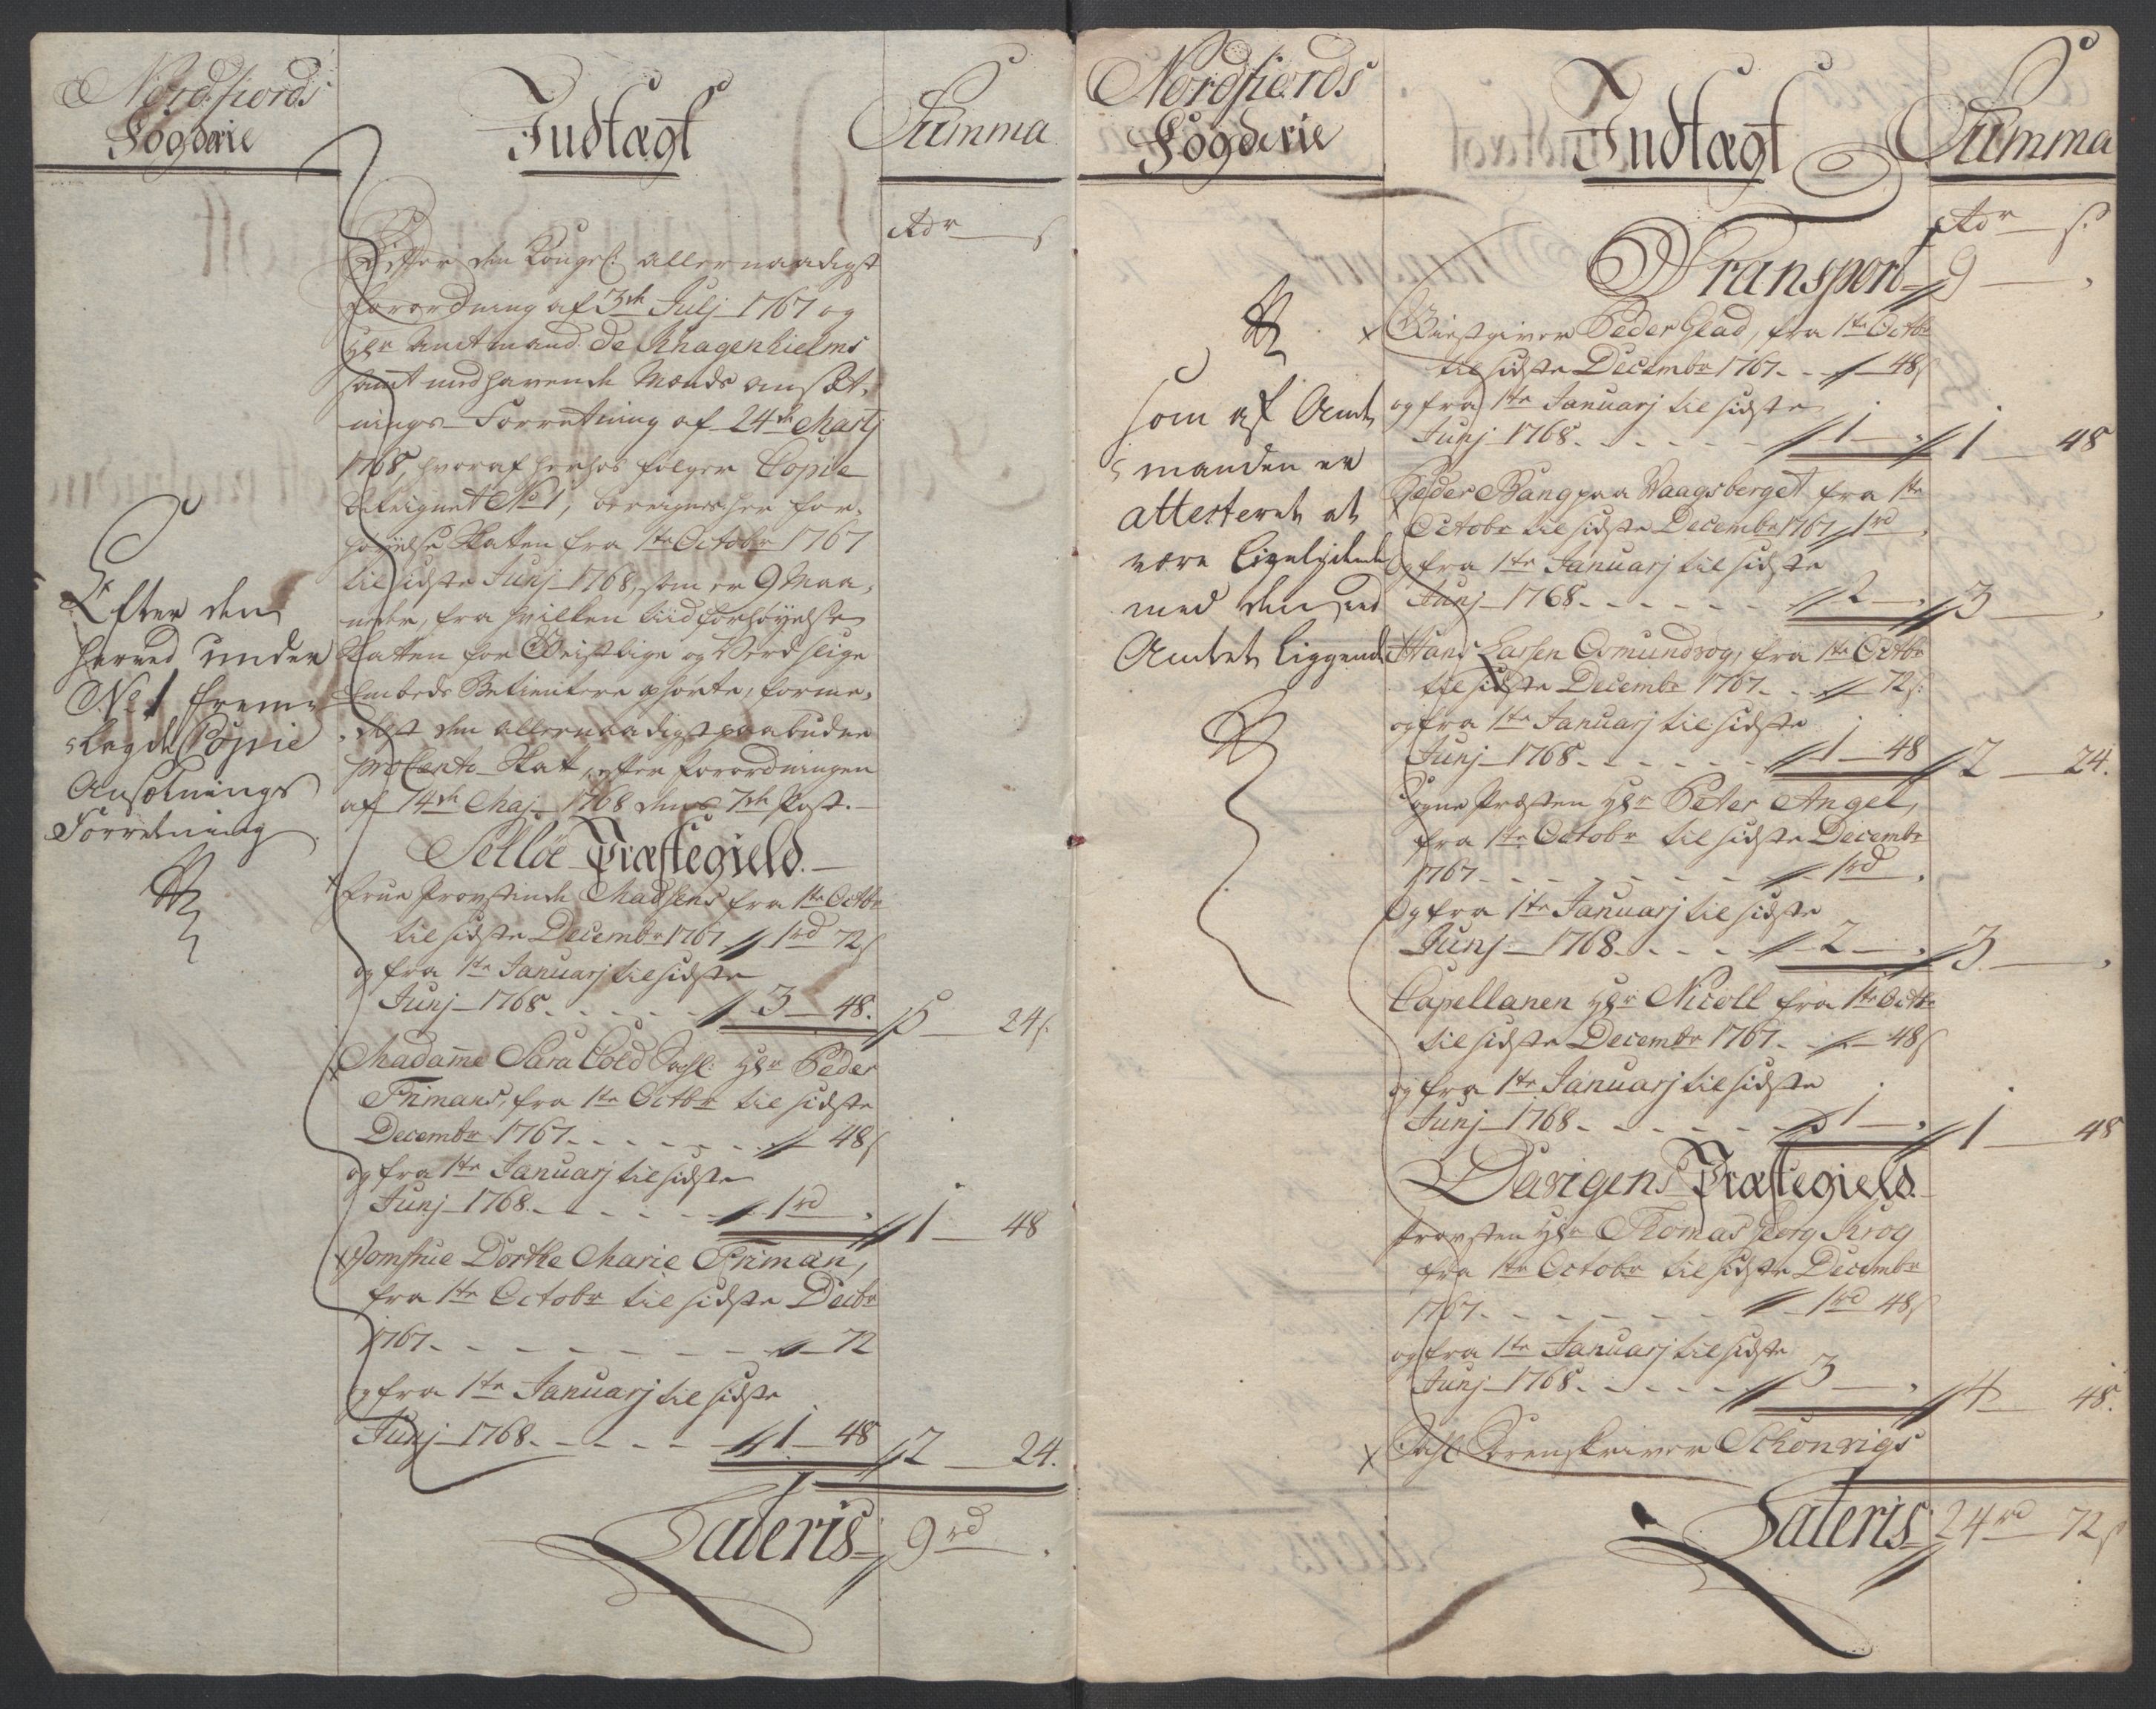 Nordfiords
Fogderie
Indtægt
Summa
Rdr s
Efter den Kongel: allernaadigst
forordning af 3die Julj 1767 og
Hr Amtmand de Knagenhielms
samt medhavende Mænds ansæt-
nings-Forretning af 24de Martj
1768, hvoraf herhos følger Copie
beteignet No 1, beregnes her for-
høyelse Skatten fra 1te Octobr 1767
til sidste Junj 1768, som er 9 Maa-
neder, fra hvilken tiid forhøyelse
Skatten for Geistlige og Verdslige
Embeds Betientere ophørte, forme-
delst den allernaadigst paabudne
pro Cento Skat, efter forordningen
af 14de Maj 1768 dens 7de Post.
Efter den
herved under
No 1 frem-
lagde Copie
Ansætnings
Forretning
Selløe Præstegield.
Frue Provstinde Madsens fra 1te Octbr
til sidste Decembr 1767 1rd 72s
og fra 1te Januarj til sidste
Junj 1768 3 48. 5 24s.
Madame Sara Cold Sahl: Hr Peder
Frimans, fra 1te Octbr til sidste
Decembr 1767 48s
og fra 1te Januarj til sidste
Junj 1768 1rd 1 48
Jomfrue Dorthe Marie Friman,
fra 1te Octobr til sidste Decbr
1767 72
og fra 1te Januarj til sidste
Junj 1768 1 48 2 24.
Lateris 9rd
Nordfiords
Fogderie
Indtægt
Summa
Rdr s.
Transport 9
som af Amt-
manden er
attesteret at
være ligelydende
med den ved
Amtet liggende
Giestgiver Peder Glad, fra 1te Octbr
til sidste Decembr 1767 48s
og fra 1te Januarj til sidste
Junj 1768 1 1 48
Peder Bang paa Vaagsberget fra 1te
Octobr til sidste Decembr 1767 1rd
og fra 1te Januarj til sidste
Junj 1768 2 3
Hans Larsen Osmundvog, fra 1te Octbr
til sidste Decembr 1767 72s.
og fra 1te Januarj til sidste
Junj 1768 1 48 2 24.
Sogne Præsten Hr Peter Angel,
fra 1te Octobr til sidste Decembr
1767 1rd
Og fra 1te Januarj til sidste
Junj 1768 2 3
Capellanen Hr Nicoll fra 1te Octbr
til sidste Decembr 1767 48s
og fra 1te Januarj til sidste
Junj 1768 1 1 48
Davigens Præstegield
Provsten Hr Thomas Georg Krog
fra 1te Octobr til sidste Decembr
1767 1rd 48s
og fra 1te Januarj til sidste
Junj 1768 3 4 48.
Sahl. Sorenskriver Schonvigs
Lateris 24rd 72s